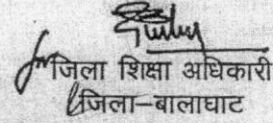 जिला शिक्षा अधिकारी
जिला–बालाघाट